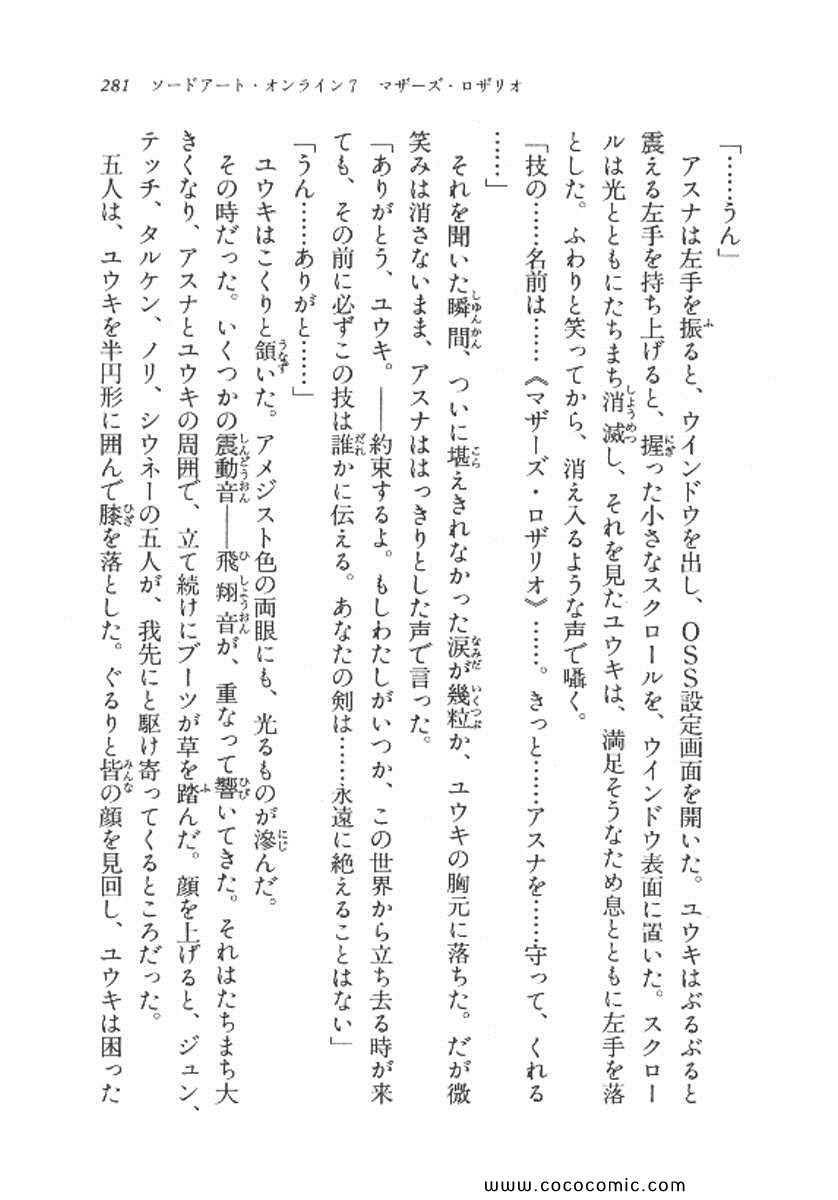 281 ソードアート・オンライン7 マザーズ・ロザリオ
「……うん」
アスナは左手を振ると、ウインドウを出し、OSS設定画面を開いた。ユウキはぶるぶると
震える左手を持ち上げると、握った小さなスクロールを、ウインドウ表面に置いた。スクロー
ルは光とともにたちまち消滅し、それを見たユウキは、満足そうなため息とともに左手を落
とした。ふわりと笑ってから、消え入るような声で囁く。
「技の……名前は……《マザーズ・ロザリオ》……。きっと……アスナを……守って、くれる
……」
それを聞いた瞬間、ついに堪えきれなかった涙が幾粒か、ユウキの胸元に落ちた。だが微
笑みは消さないまま、アスナははっきりとした声で言った。
「ありがとう、ユウキ。――約束するよ。もしわたしがいつか、この世界から立ち去る時が来
ても、その前に必ずこの技は誰かに伝える。あなたの剣は……永遠に絶えることはない」
「うん……ありがと……」
ユウキはこくりと頷いた。アメジスト色の両眼にも、光るものが滲んだ。
その時だった。いくつかの震動音――飛翔音が、重なって響いてきた。それはたちまち大
きくなり、アスナとユウキの周囲で、立て続けにブーツが草を踏んだ。顔を上げると、ジュン、
テッチ、タルケン、ノリ、シウネーの五人が、我先にと駆け寄ってくるところだった。
五人は、ユウキを半円形に囲んで膝を落とした。ぐるりと皆の顔を見回し、ユウキは困った
www.cococomic.com